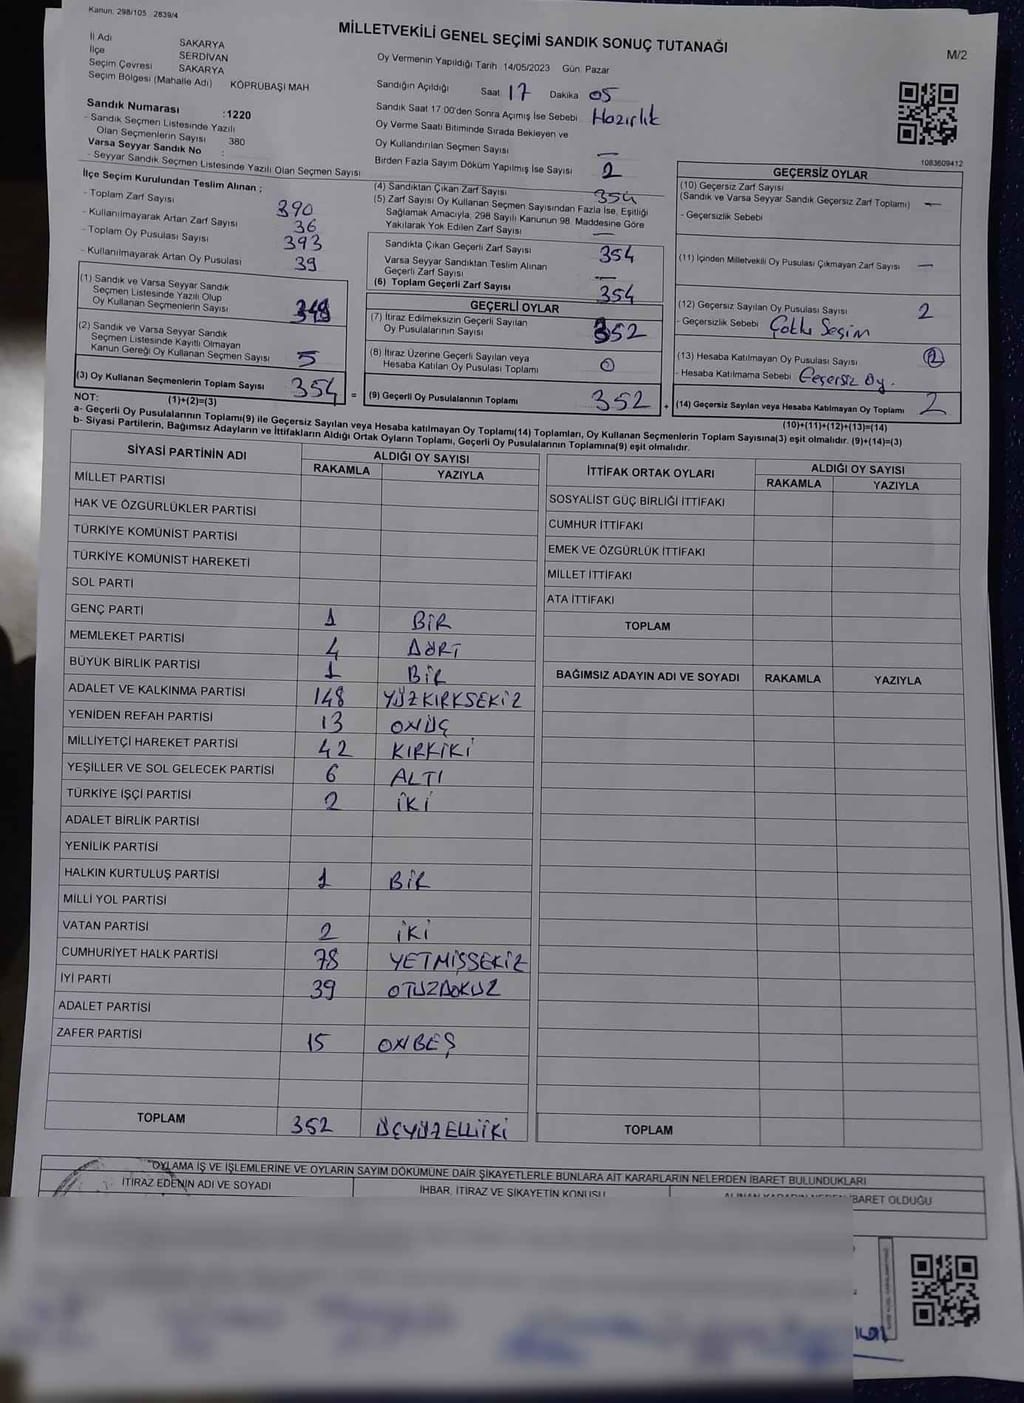 Kanun: 298/105 2839/4
MİLLETVEKİLİ GENEL SEÇİMİ SANDIK SONUÇ TUTANAĞI
M/2
İl Adı SAKARYA
İlçe SERDİVAN
Seçim Çevresi SAKARYA
Seçim Bölgesi (Mahalle Adı) KÖPRÜBAŞI MAH
Sandık Numarası :1220
- Sandık Seçmen Listesinde Yazılı
Olan Seçmenlerin Sayısı 380
Varsa Seyyar Sandık No :
- Seyyar Sandık Seçmen Listesinde Yazılı Olan Seçmen Sayısı
Oy Vermenin Yapıldığı Tarih 14/05/2023 Gün: Pazar
Sandığın Açıldığı Saat 17 Dakika 05
Sandık Saat 17:00'den Sonra Açımış İse Sebebi Hazırlık
Oy Verme Saati Bitiminde Sırada Bekleyen ve
Oy Kullandırılan Seçmen Sayısı —
Birden Fazla Sayım Döküm Yapılmış İse Sayısı 2
1083609412
İlçe Seçim Kurulundan Teslim Alınan ;
- Toplam Zarf Sayısı 390
- Kullanılmayarak Artan Zarf Sayısı 36
- Toplam Oy Pusulası Sayısı 393
- Kullanılmayarak Artan Oy Pusulası 39
(1) Sandık ve Varsa Seyyar Sandık
Seçmen Listesinde Yazılı Olup
Oy Kullanan Seçmenlerin Sayısı 349
(2) Sandık ve Varsa Seyyar Sandık
Seçmen Listesinde Kayıtlı Olmayan
Kanun Gereği Oy Kullanan Seçmen Sayısı 5
(3) Oy Kullanan Seçmenlerin Toplam Sayısı 354 =
(1)+(2)=(3)
(4) Sandıktan Çıkan Zarf Sayısı 354
(5) Zarf Sayısı Oy Kullanan Seçmen Sayısından Fazla İse, Eşitliği
Sağlamak Amacıyla, 298 Sayılı Kanunun 98. Maddesine Göre
Yakılarak Yok Edilen Zarf Sayısı —
Sandıkta Çıkan Geçerli Zarf Sayısı 354
Varsa Seyyar Sandıktan Teslim Alınan
Geçerli Zarf Sayısı —
(6) Toplam Geçerli Zarf Sayısı 354
GEÇERLİ OYLAR
(7) İtiraz Edilmeksizin Geçerli Sayılan
Oy Pusulalarının Sayısı 352
(8) İtiraz Üzerine Geçerli Sayılan veya
Hesaba Katılan Oy Pusulası Toplamı 0
(9) Geçerli Oy Pusulalarının Toplamı 352 +
GEÇERSİZ OYLAR
(10) Geçersiz Zarf Sayısı
(Sandık ve Varsa Seyyar Sandık Geçersiz Zarf Toplamı) —
- Geçersizlik Sebebi
(11) İçinden Milletvekili Oy Pusulası Çıkmayan Zarf Sayısı —
(12) Geçersiz Sayılan Oy Pusulası Sayısı 2
- Geçersizlik Sebebi Çoklu Seçim
(13) Hesaba Katılmayan Oy Pusulası Sayısı 2
- Hesaba Katılmama Sebebi Geçersiz Oy.
(14) Geçersiz Sayılan veya Hesaba Katılmayan Oy Toplamı 2
(10)+(11)+(12)+(13)=(14)
NOT:
a- Geçerli Oy Pusulalarının Toplamı(9) ile Geçersiz Sayılan veya Hesaba katılmayan Oy Toplamı(14) Toplamları, Oy Kullanan Seçmenlerin Toplam Sayısına(3) eşit olmalıdır. (9)+(14)=(3)
b- Siyasi Partilerin, Bağımsız Adayların ve İttifakların Aldığı Ortak Oyların Toplamı, Geçerli Oy Pusulalarının Toplamına(9) eşit olmalıdır.
SİYASİ PARTİNİN ADI ALDIĞI OY SAYISI
RAKAMLA YAZIYLA
MİLLET PARTİSİ
HAK VE ÖZGÜRLÜKLER PARTİSİ
TÜRKİYE KOMÜNİST PARTİSİ
TÜRKİYE KOMÜNİST HAREKETİ
SOL PARTİ
GENÇ PARTİ 1 BİR
MEMLEKET PARTİSİ 4 DÖRT
BÜYÜK BİRLİK PARTİSİ 1 BİR
ADALET VE KALKINMA PARTİSİ 148 YÜZKIRKSEKİZ
YENİDEN REFAH PARTİSİ 13 ONÜÇ
MİLLİYETÇİ HAREKET PARTİSİ 42 KIRKİKİ
YEŞİLLER VE SOL GELECEK PARTİSİ 6 ALTI
TÜRKİYE İŞÇİ PARTİSİ 2 İKİ
ADALET BİRLİK PARTİSİ
YENİLİK PARTİSİ
HALKIN KURTULUŞ PARTİSİ 1 BİR
MİLLİ YOL PARTİSİ
VATAN PARTİSİ 2 İKİ
CUMHURİYET HALK PARTİSİ 78 YETMİŞSEKİZ
İYİ PARTİ 39 OTUZDOKUZ
ADALET PARTİSİ
ZAFER PARTİSİ 15 ONBEŞ
TOPLAM 352 ÜÇYÜZELLİİKİ
İTTİFAK ORTAK OYLARI ALDIĞI OY SAYISI
RAKAMLA YAZIYLA
SOSYALİST GÜÇ BİRLİĞİ İTTİFAKI
CUMHUR İTTİFAKI
EMEK VE ÖZGÜRLÜK İTTİFAKI
MİLLET İTTİFAKI
ATA İTTİFAKI
TOPLAM
BAĞIMSIZ ADAYIN ADI VE SOYADI RAKAMLA YAZIYLA
TOPLAM
OYLAMA İŞ VE İŞLEMLERİNE VE OYLARIN SAYIM DÖKÜMÜNE DAİR ŞİKAYETLERLE BUNLARA AİT KARARLARIN NELERDEN İBARET BULUNDUKLARI
İTİRAZ EDENİN ADI VE SOYADI
İHBAR, İTİRAZ VE ŞİKAYETİN KONUSU
ALINAN KARARIN NEDEN İBARET OLDUĞU